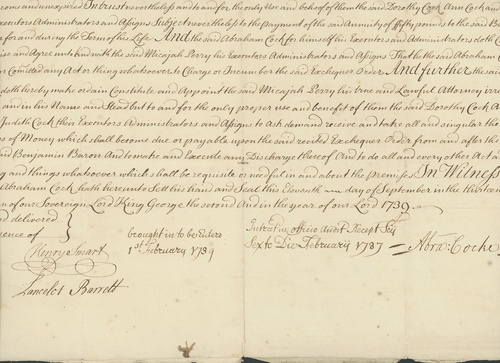 and to and for the only use and behoof of them the said Dorothy Cock Ann Cock
Executors Administrators and Assigns Subject nevertheless to the payment of the said Annuity of fifty pounds to the said
for and during the Term of his Life And the said Abraham Cock for himself his Executors and Administrators doth
and Agree to and with the said Micajah Perry his Executors Administrators and Assigns That he the said Abraham
Comitted any Act or thing whatsoever to Charge or Incumber the said Exchequer Order And further the said
doth hereby make ordain Constitute and Appoint the said Micajah Perry his true and Lawful Attorney
and in his Name and Stead but to and for the only proper use and benefit of them the said Dorothy Cock
Judith Cock their Executors Administrators and Assigns to Ask demand receive and take all and singular the
of Money which shall become due or payable upon the said recited Exchequer Order from and after the
Benjamin Baron And to make and Execute any Discharge thereof And to do all and every other Act
and things whatsoever which shall be requisite or needful in and about the premises In Witness
Abraham Cock hath hereunto Sett his hand and Seal this Eleventh day of September in the thirteenth
of our Sovereign Lord King George the second And in the year of our Lord 1739.
and delivered
brought in to be Enter'd
1st February 1739
Henry Smart
Lancelot Barrett
Sexto Die February 1737
Abra: Cocke